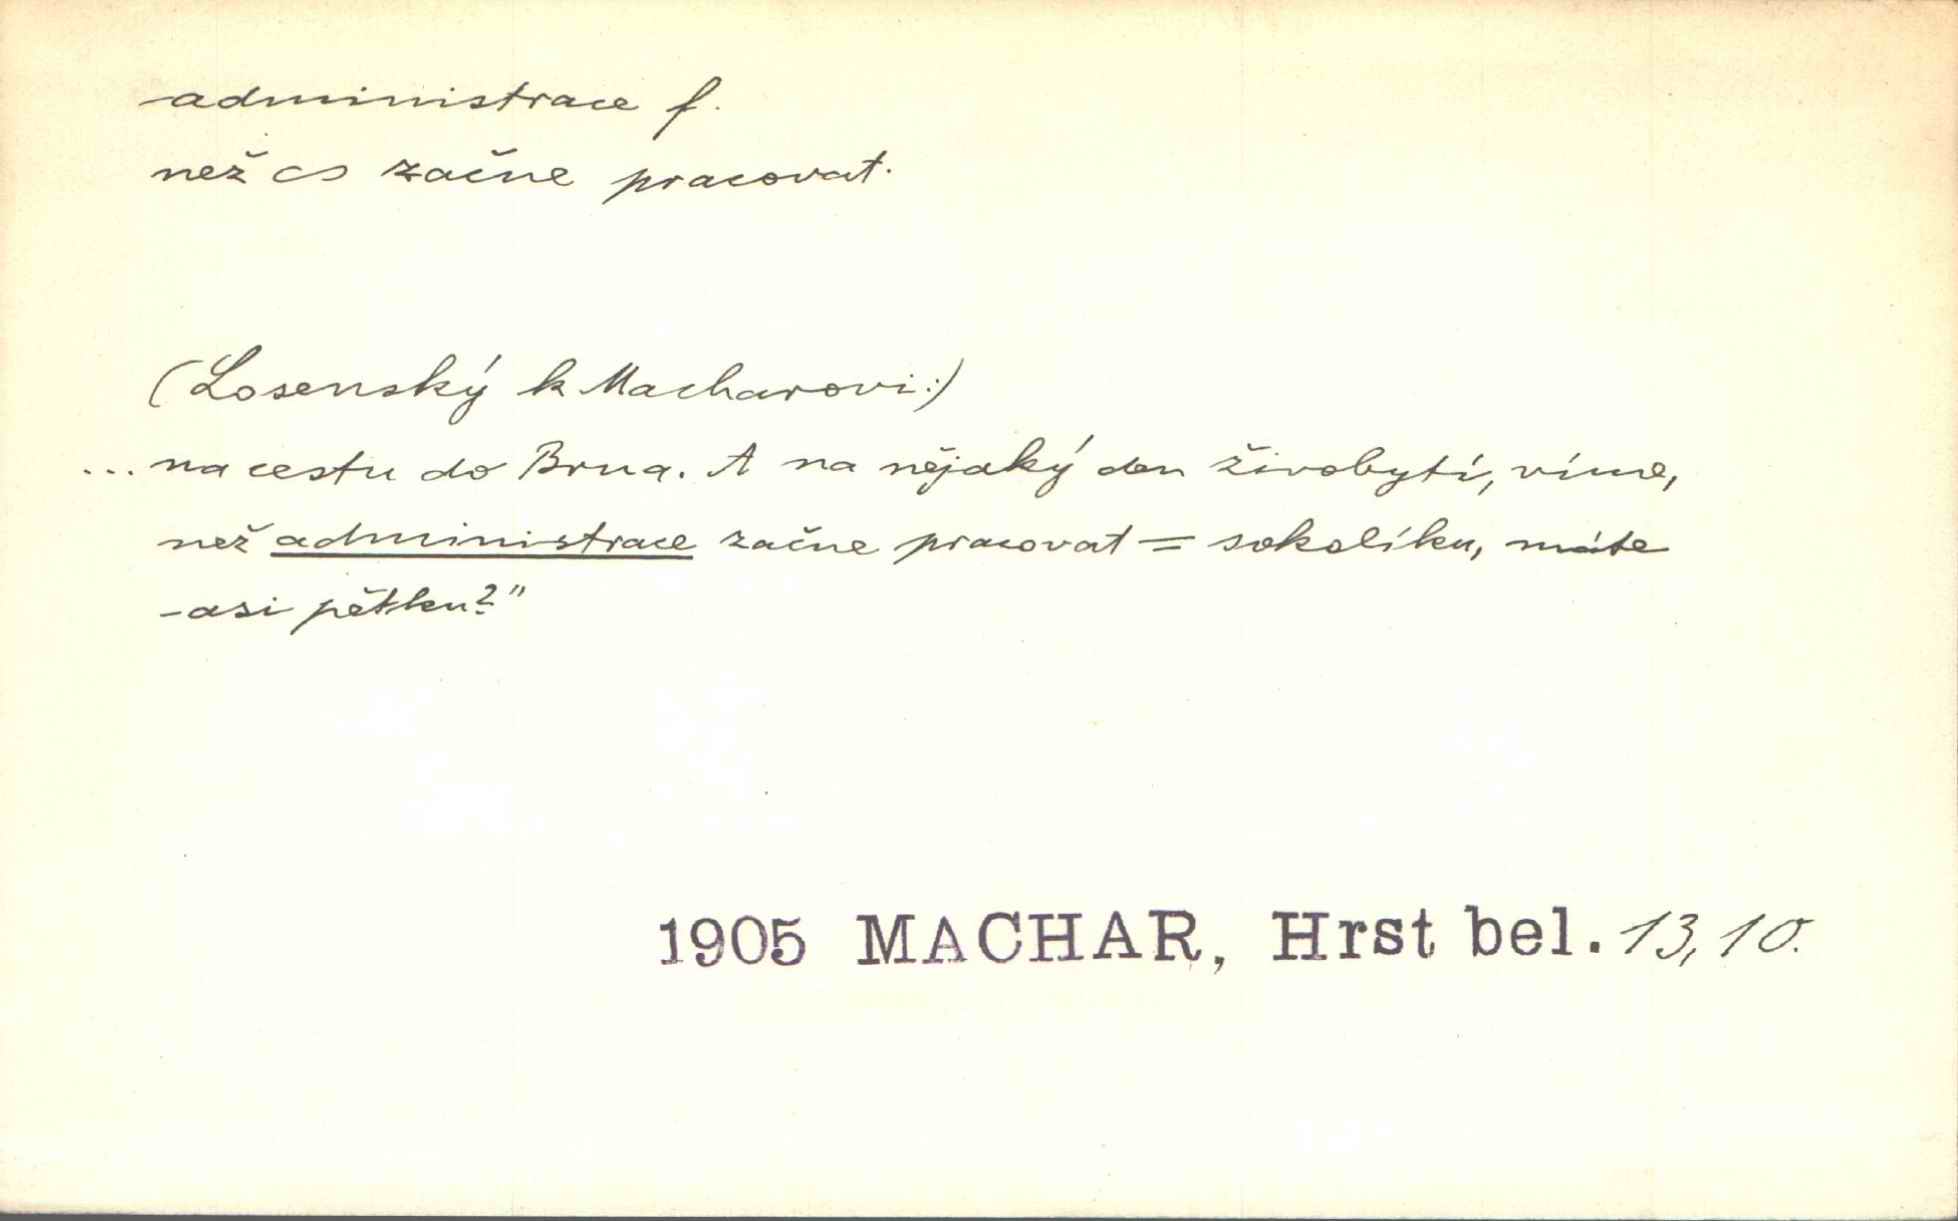 administrace f.
než ∽ začne pracovat.
(Losenský k Macharovi:)
... na cestu do Brna. A na nějaký den živobytí, víme,
než administrace začne pracovat = sokolíku, máte
asi pětku?"
1905 MACHAR, Hrst bel. 13,10.